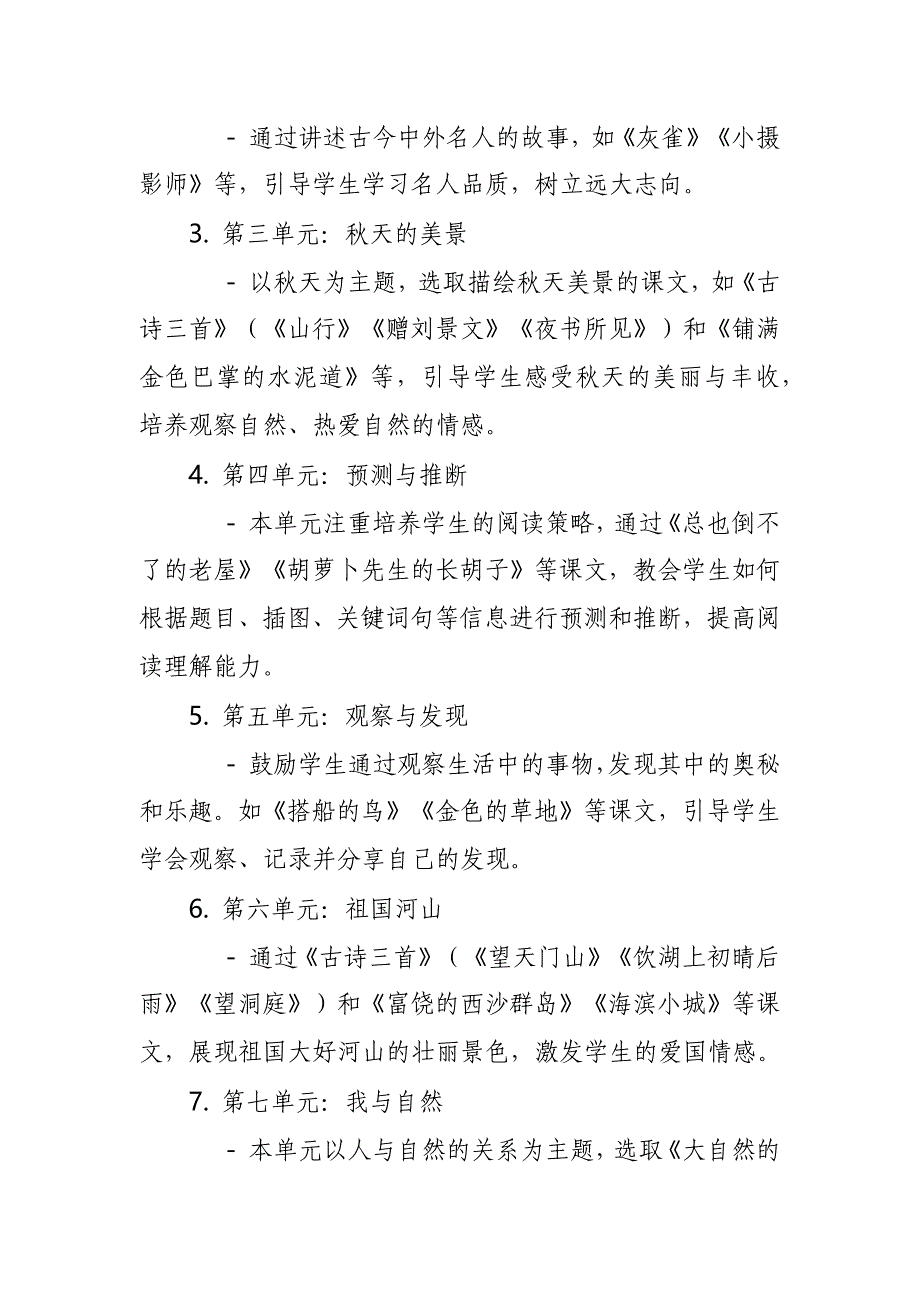 - 通过讲述古今中外名人的故事，如《灰雀》《小摄
影师》等，引导学生学习名人品质，树立远大志向。
3. 第三单元：秋天的美景
- 以秋天为主题，选取描绘秋天美景的课文，如《古
诗三首》（《山行》《赠刘景文》《夜书所见》）和《铺满
金色巴掌的水泥道》等，引导学生感受秋天的美丽与丰收，
培养观察自然、热爱自然的情感。
4. 第四单元：预测与推断
- 本单元注重培养学生的阅读策略，通过《总也倒不
了的老屋》《胡萝卜先生的长胡子》等课文，教会学生如何
根据题目、插图、关键词句等信息进行预测和推断，提高阅
读理解能力。
5. 第五单元：观察与发现
- 鼓励学生通过观察生活中的事物，发现其中的奥秘
和乐趣。如《搭船的鸟》《金色的草地》等课文，引导学生
学会观察、记录并分享自己的发现。
6. 第六单元：祖国河山
- 通过《古诗三首》（《望天门山》《饮湖上初晴后
雨》《望洞庭》）和《富饶的西沙群岛》《海滨小城》等课
文，展现祖国大好河山的壮丽景色，激发学生的爱国情感。
7. 第七单元：我与自然
- 本单元以人与自然的关系为主题，选取《大自然的